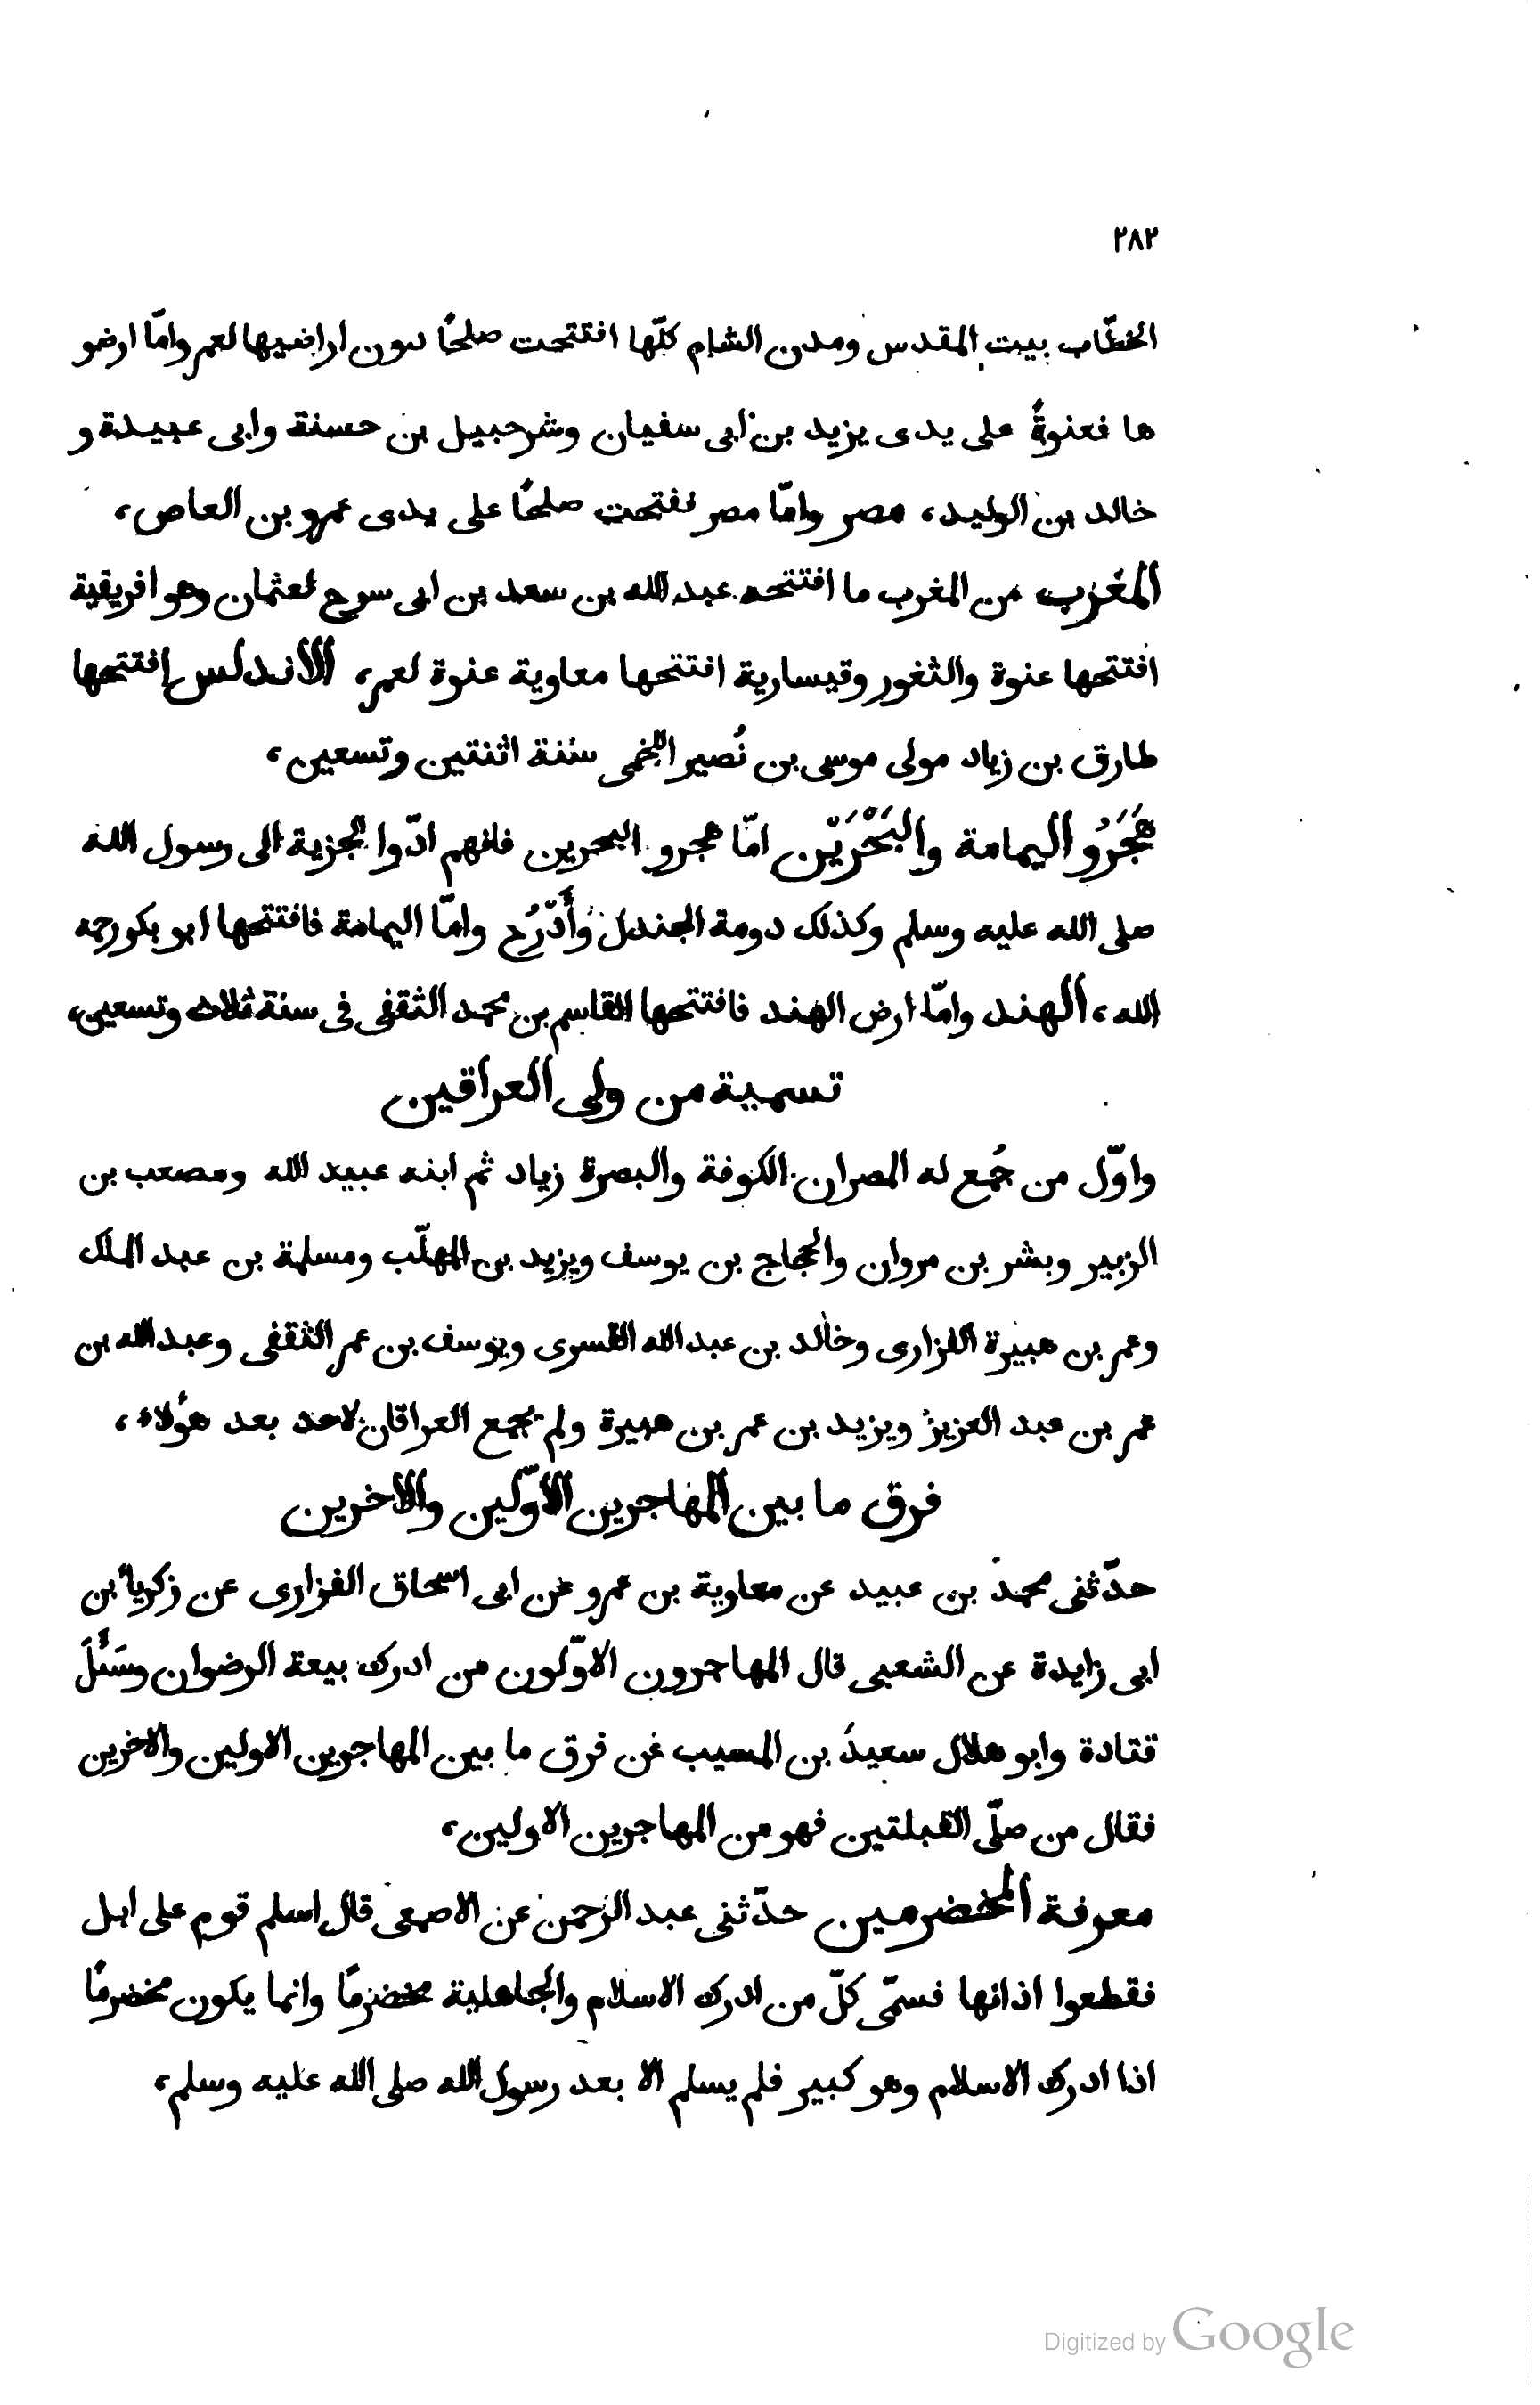 ٢٨٣
الخطّاب بيت المقدس ومدن الشام كلّها افتتحت صلحًا دون اراضيها لعمر وامّا ارضو
ها فعنوةً على يدى يزيد بن ابى سفيان وشرحبيل بن حسنة وابى عبيدة و
خالد بن الوليد، مصر وامّا مصر ففتحت صلحًا على يدى عمرو بن العاص،
المغرب من المغرب ما افتتحه عبد الله بن سعد بن ابى سرح لعثمان وهو افريقية
افتتحها عنوة والثغور وقيسارية افتتحها معاوية عنوة لعمر، الاندلس افتتحها
طارق بن زياد مولى موسى بن نُصير اللخمى سنة اثنتين وتسعين،
هَجَرُو اليمامة والبَحْرَيْن امّا هجرو البحرين فانهم ادّوا الجزية الى رسول الله
صلى الله عليه وسلم وكذلك دومة الجندل وأَذْرُح وامّا اليمامة فافتتحها ابو بكر رحمه
الله، الهند وامّا ارض الهند فافتتحها القاسم بن محمد الثقفى فى سنة ثلاث وتسعين،
تسمية من ولى العراقين
واوّل من جُمع له المصران الكوفة والبصرة زياد ثم ابنه عبيد الله ومصعب بن
الزبير وبشر بن مروان والحجاج بن يوسف ويزيد بن المهلّب ومسلمة بن عبد الملك
وعمر بن هبيرة الفزارى وخالد بن عبد الله القسرى ويوسف بن عمر الثقفى وعبد الله بن
عمر بن عبد العزيز ويزيد بن عمر بن هبيرة ولم يجمع العراقان لاحد بعد هؤلاء،
فرق ما بين المهاجرين الاوّلين والاخرين
حدّثنى محمد بن عبيد عن معاوية بن عمرو عن ابى اسحاق الفزارى عن زكرياء بن
ابى زايدة عن الشعبى قال المهاجرون الاوّلون من ادرك بيعة الرضوان وسَئَلَ
قتادة وابو هلال سعيد بن المسيب عن فرق ما بين المهاجرين الاولين والاخرين
فقال من صلّى القبلتين فهو من المهاجرين الاولين،
معرفة المخضرمين حدّثنى عبد الرحمن عن الاصمعى قال اسلم قوم على ابل
فقطعوا اذانها فسمّى كلّ من ادرك الاسلام والجاهلية مخضرمًا وانما يكون مخضرمًا
اذا ادرك الاسلام وهو كبير فلم يسلم الا بعد رسول الله صلى الله عليه وسلم،
Digitized by Google